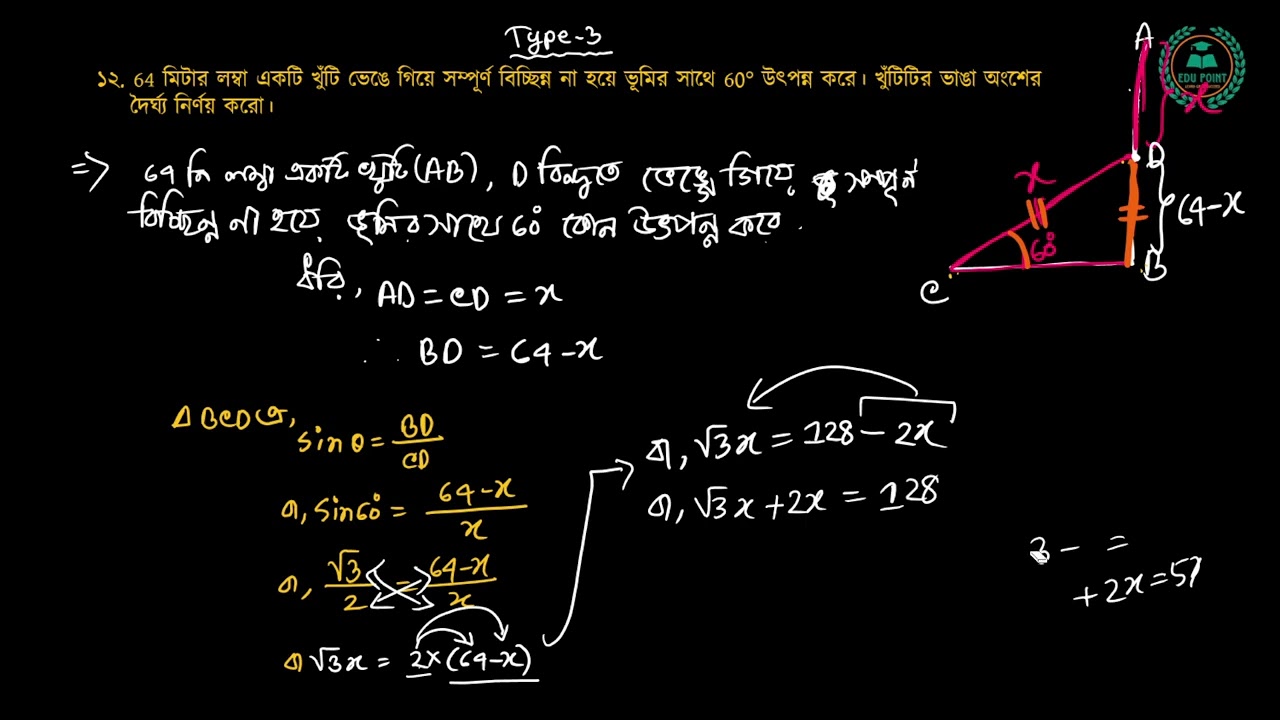 Type-3
১২. 64 মিটার লম্বা একটি খুঁটি ভেঙে গিয়ে সম্পূর্ণ বিচ্ছিন্ন না হয়ে ভূমির সাথে 60° উৎপন্ন করে। খুঁটিটির ভাঙা অংশের
দৈর্ঘ্য নির্ণয় করো।
A
EDU POINT
x
D
x
64-x
60°
C
B
=> 64 মি লম্বা একটি খুঁটি (AB), D বিন্দুতে ভেঙ্গে গিয়ে সম্পূর্ন
বিচ্ছিন্ন না হয়ে ভূমির সাথে 60° কোন উৎপন্ন করে.
ধরি, AD = CD = x
∴ BD = 64-x
Δ BCD এ,
sin θ = BD/CD
বা, sin60° = 64-x/x
বা, √3/2 = 64-x/x
বা √3x = 2×(64-x)
বা, √3x = 128-2x
বা, √3x+2x = 128
3- =
+2x=51